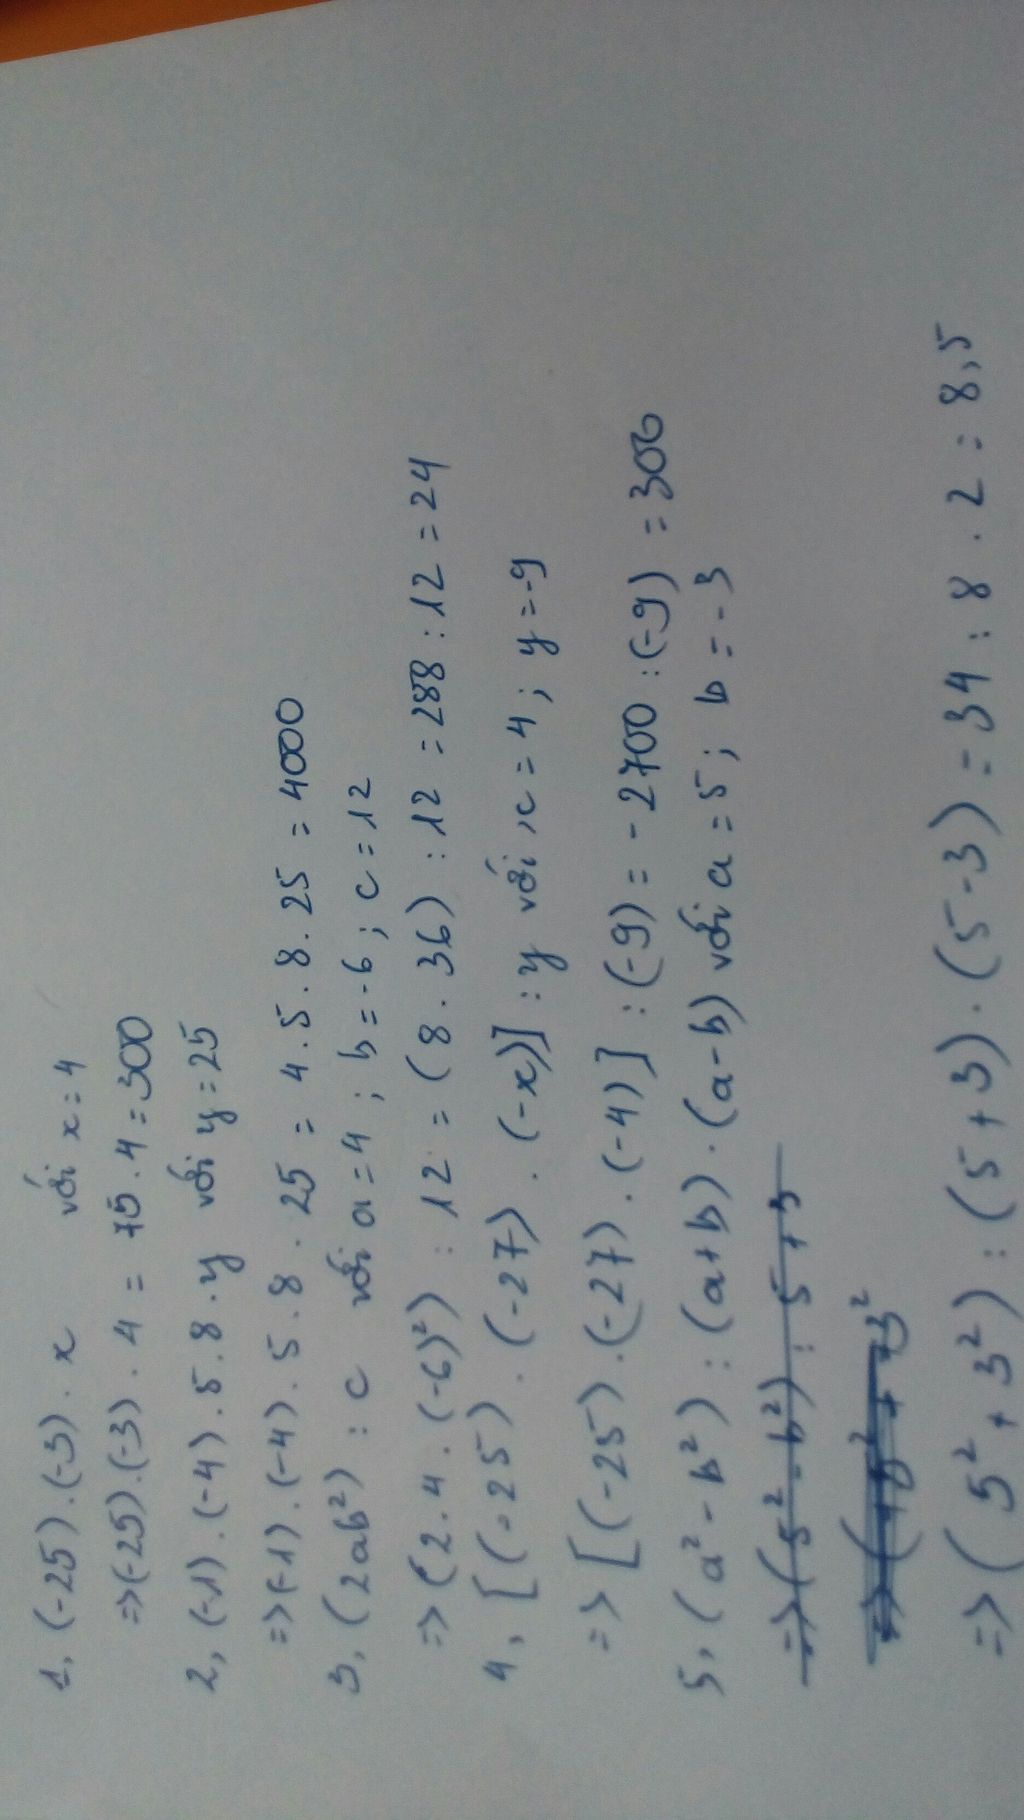 1, (-25).(-3).x với x=4
=>(-25).(-3).4 = 75.4=300
2, (-1).(-4).5.8.y với y=25
=>(-1).(-4).5.8.25 = 4.5.8.25 = 4000
3, (2ab²) : c với a=4; b=-6; c=12
=>(2.4.(-6)²) : 12 = (8.36) : 12 = 288 : 12 = 24
4, [(-25).(-27).(-x)] : y với x=4; y=-9
=> [(-25).(-27).(-4)] : (-9) = -2700 : (-9) = 300
5, (a²-b²) : (a+b).(a-b) với a=5; b=-3
=>(5²-b²) : 5+3
=> (5² + 3²) : (5+3).(5-3) = 34 : 8 . 2 = 8,5